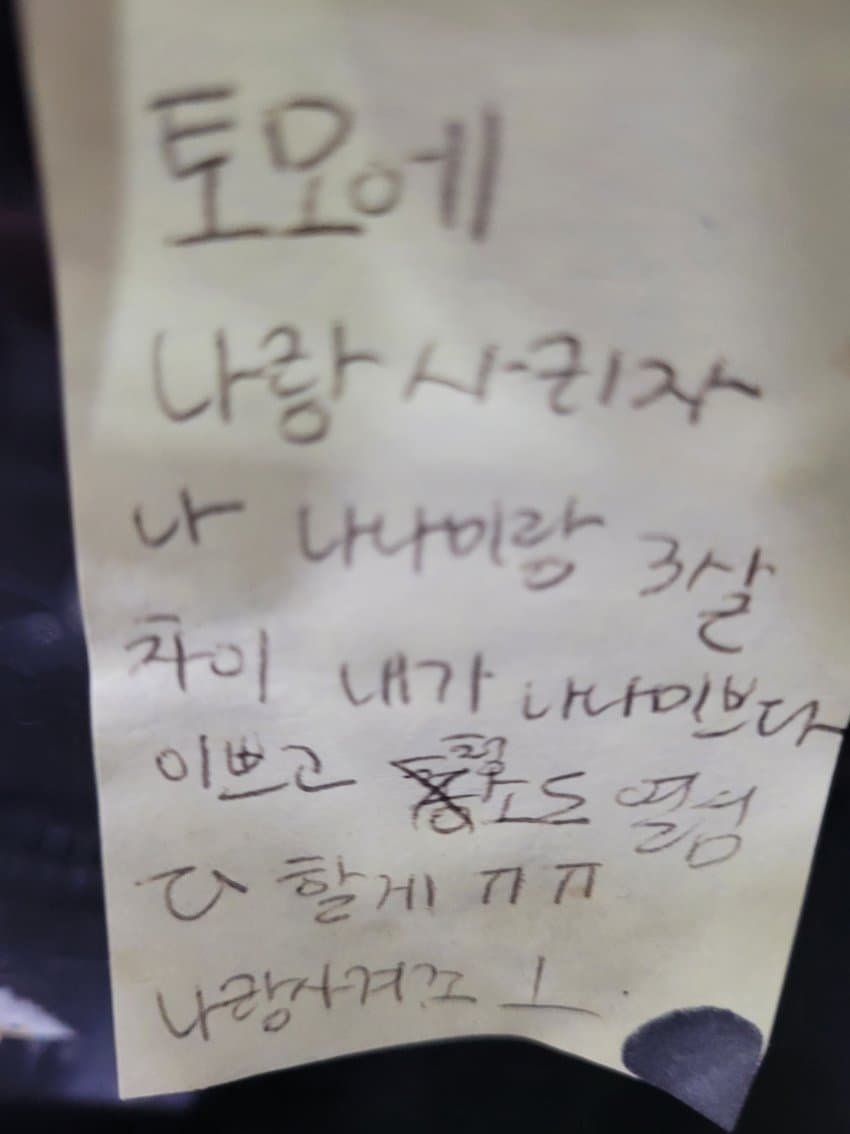 토모에
나랑 사귀자
나 나나미랑 3살
차이 내가 나나미쁘다
이쁘고 청소도 열심
히 할게 ㅠㅠ
나랑사겨조 ㅗ.